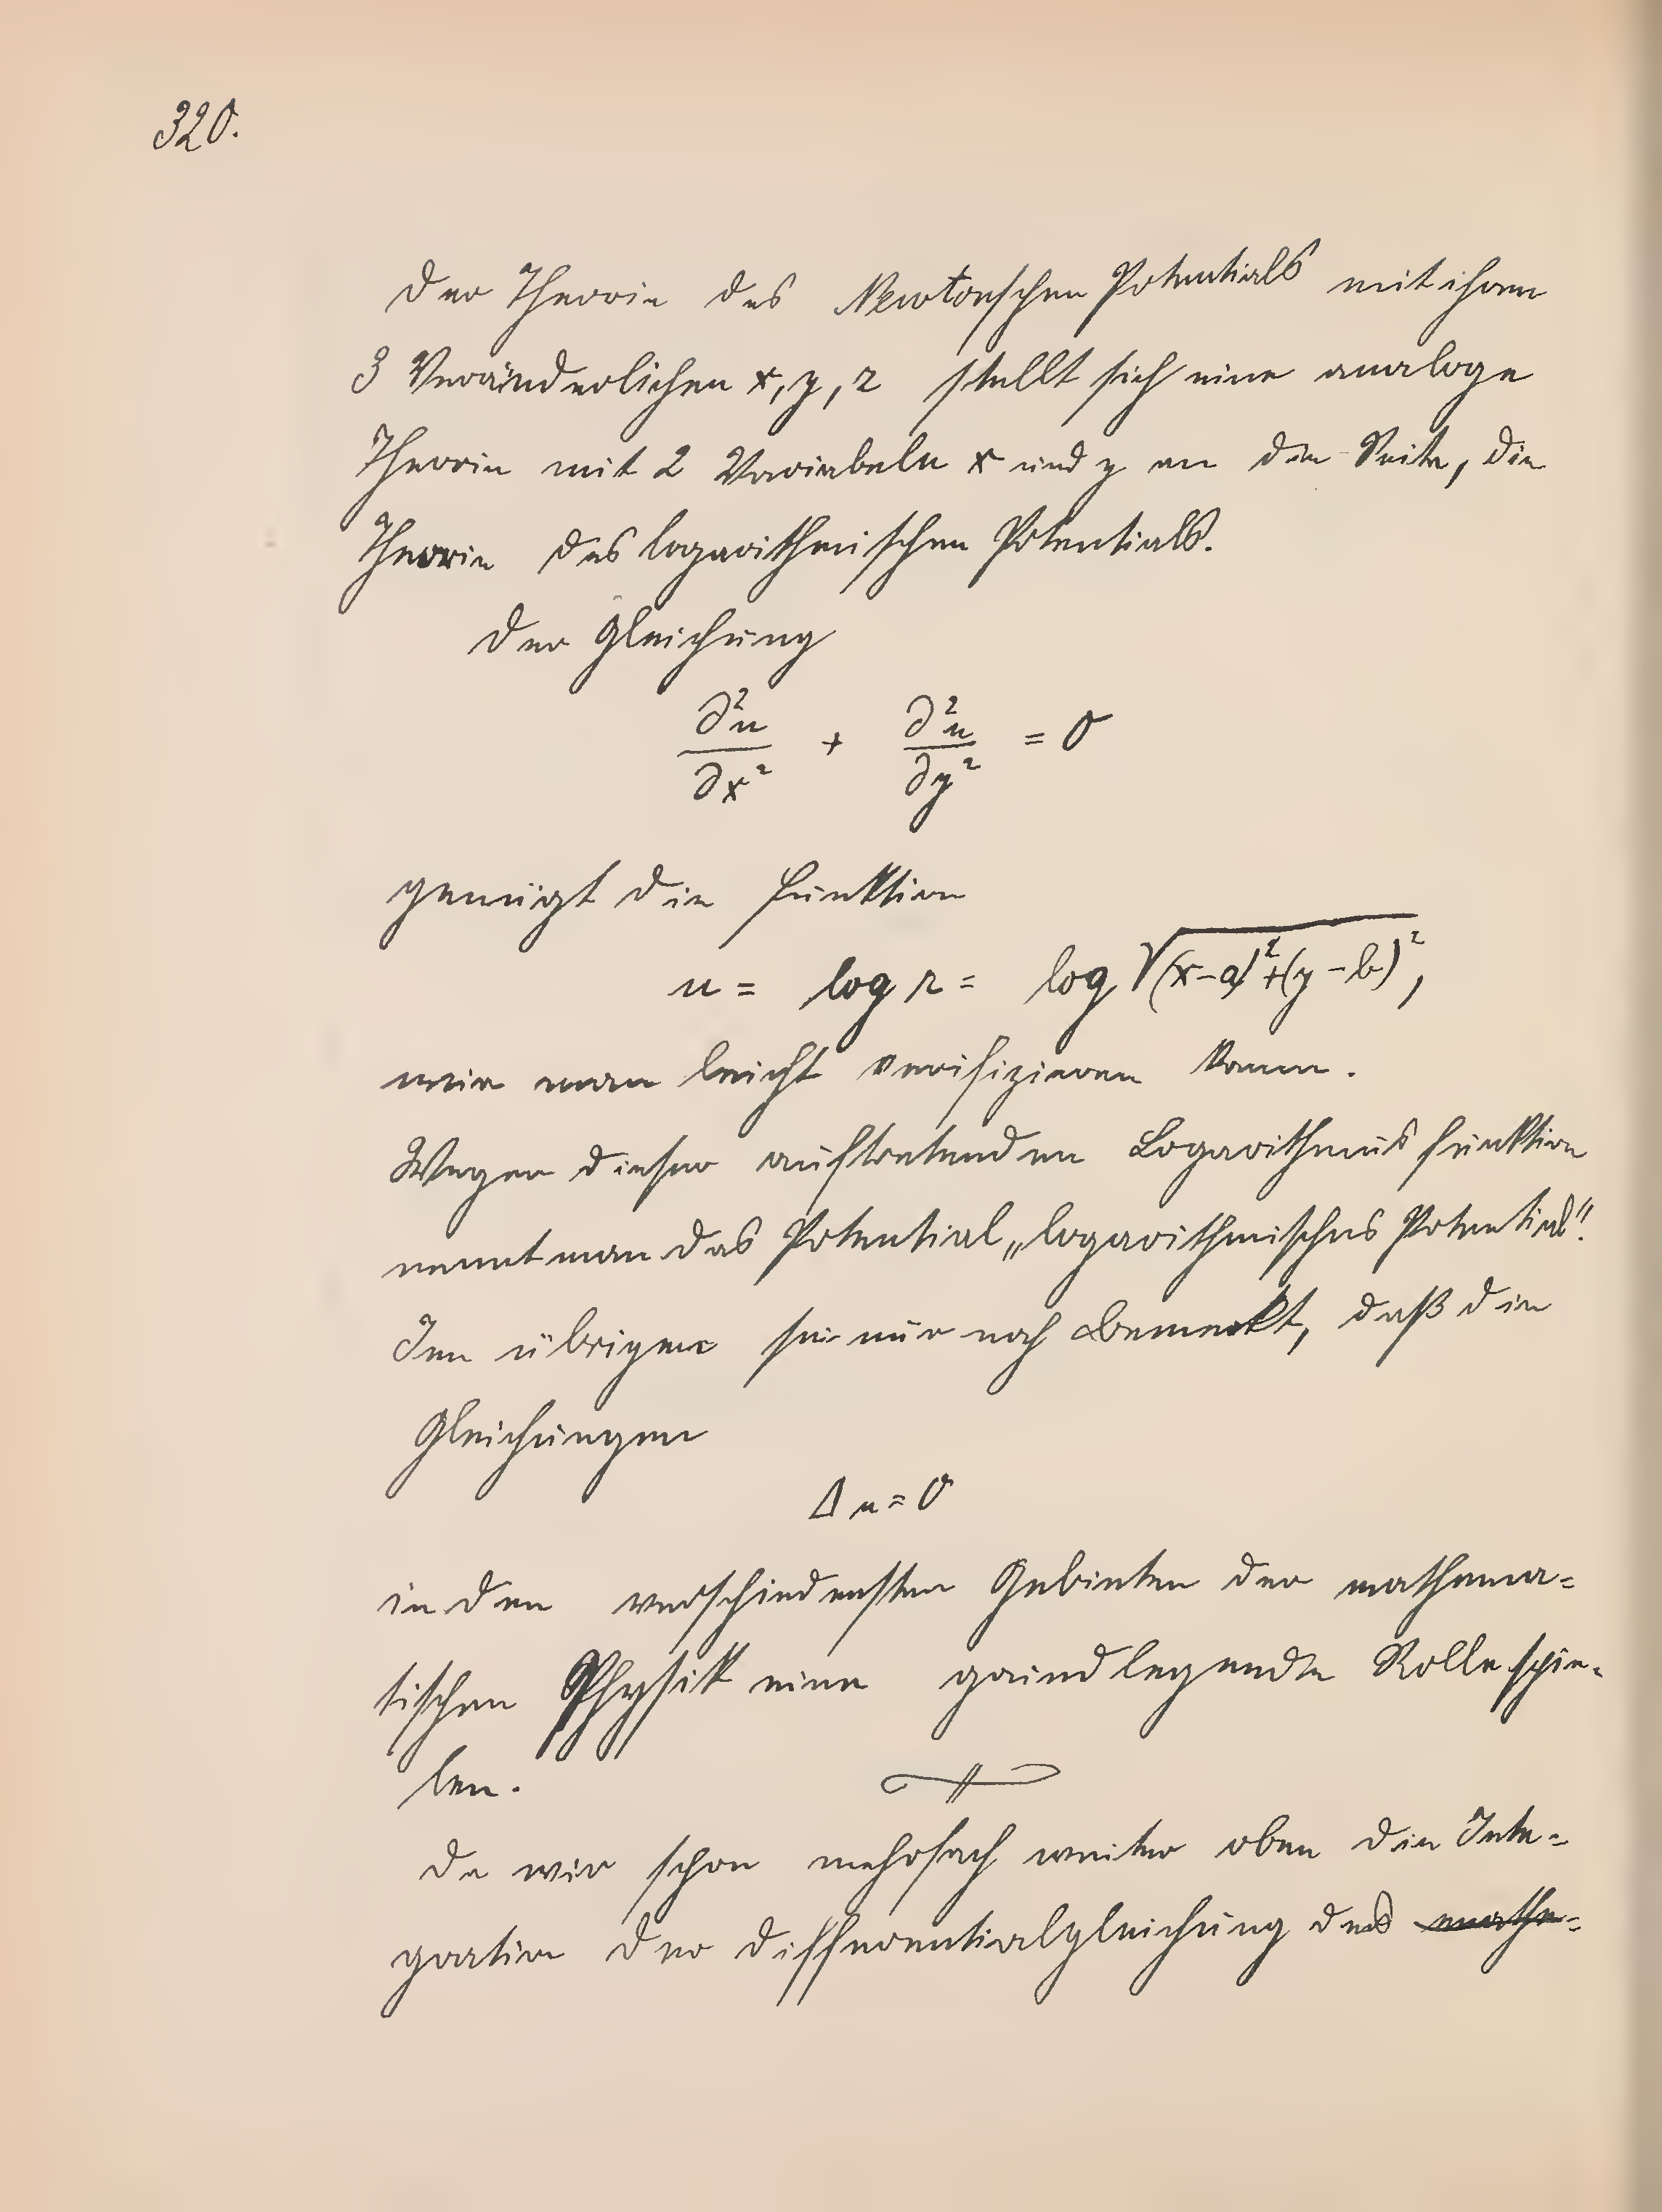 320.
Der Theorie des Newtonschen Potentials mit ihren
3 Veränderlichen x, y, z stellt sich eine analoge
Theorie mit 2 Variabeln x und y an die Seite, die
Theorie des logarithmischen Potentials.
Der Gleichung
∂²u/∂x² + ∂²u/∂y² = 0
genügt die Funktion
u = log r = log √(x-a)²+(y-b)²,
wie man leicht verifizieren kann.
Wegen dieser auftretenden Logarithmusfunktion
nennt man das Potential „logarithmisches Potential".
Im übrigen sei nur noch bemerkt, daß die
Gleichungen
Δu = 0
in den verschiedensten Gebieten der mathema=
tischen Physik eine grundlegende Rolle spie-
len.
Da wir schon mehrfach weiter oben die Inte=
gration der Differentialgleichung des mathe=